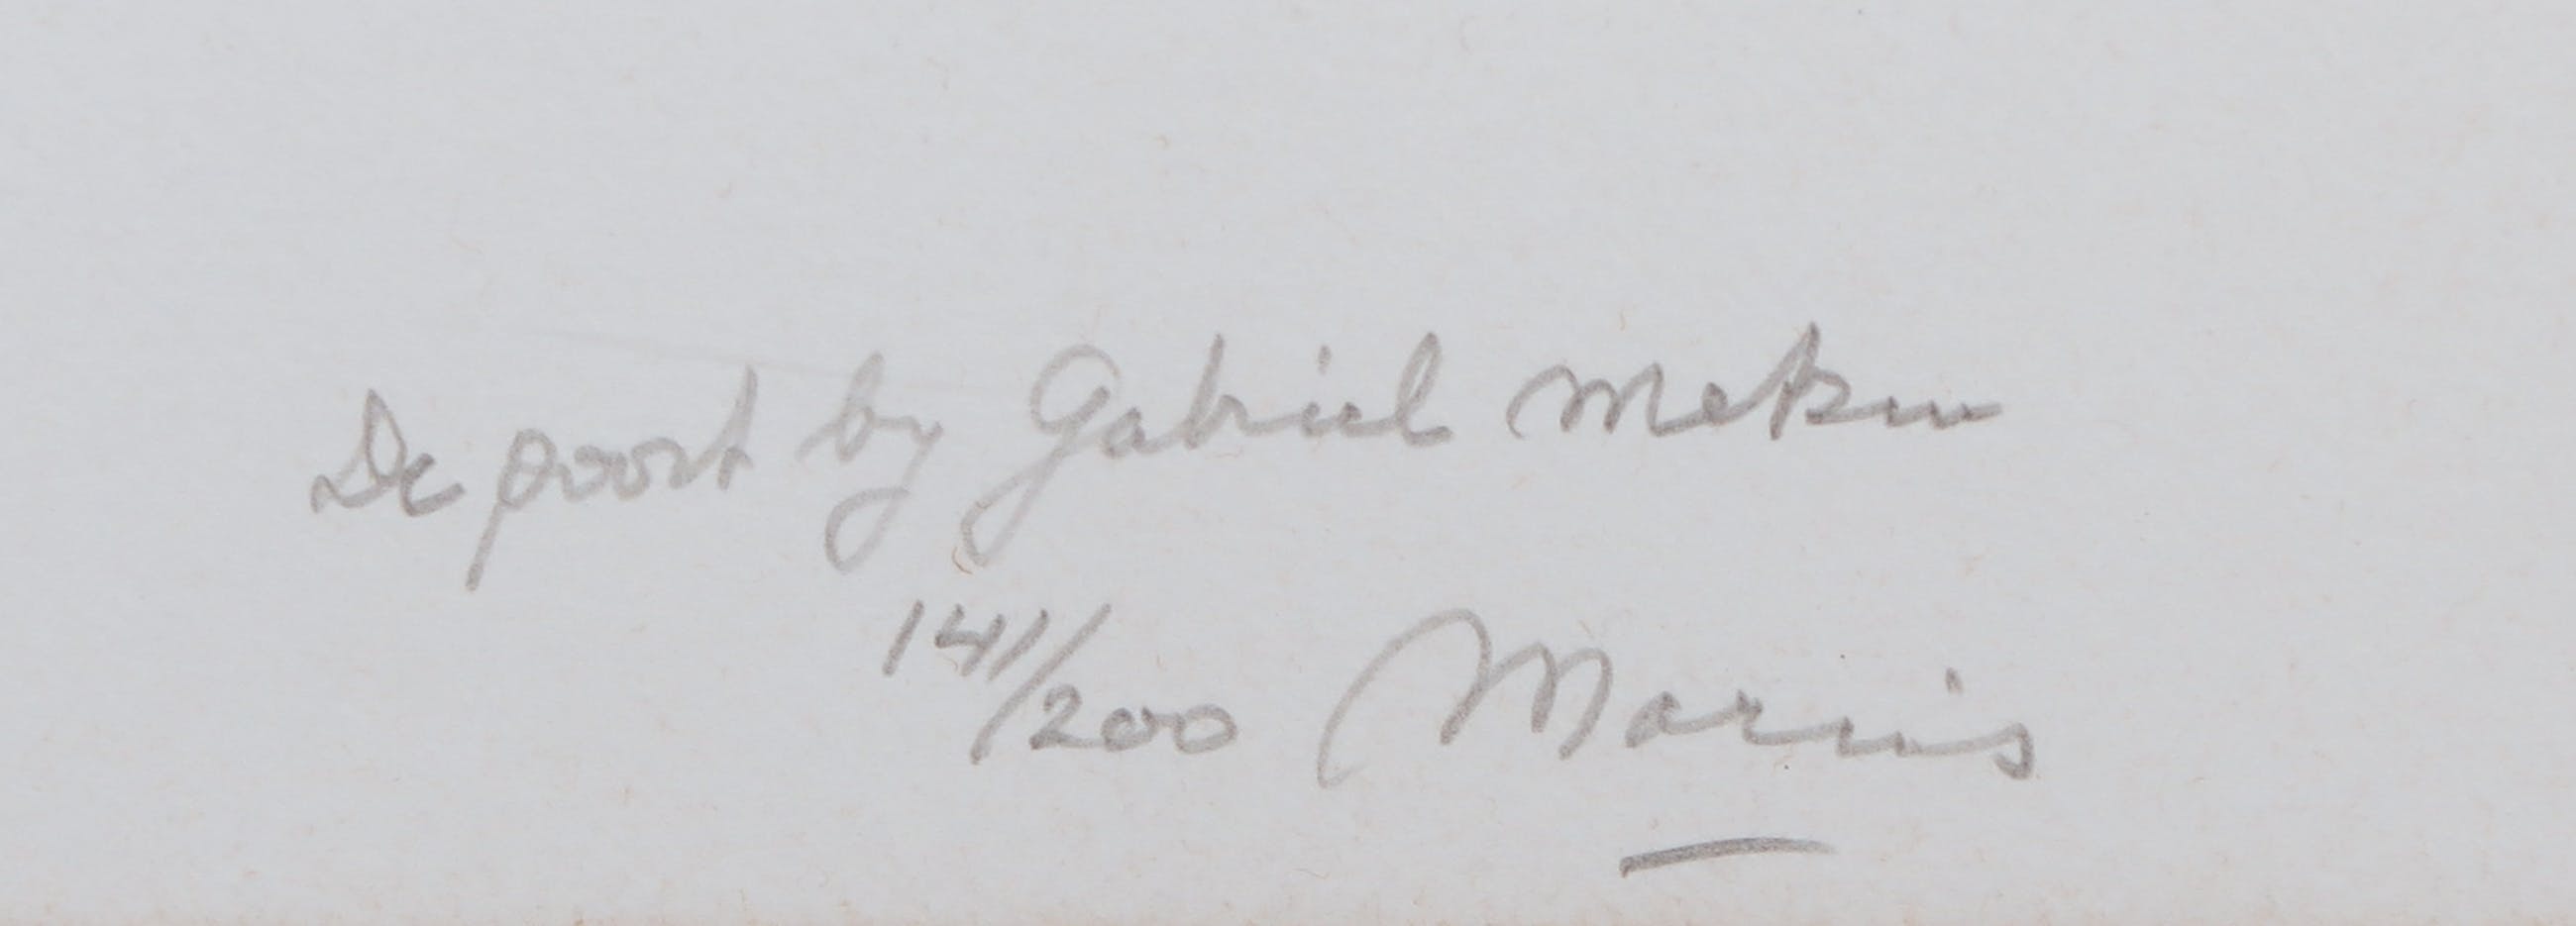 De poort by Gabriel Metsu
141/200 Marius